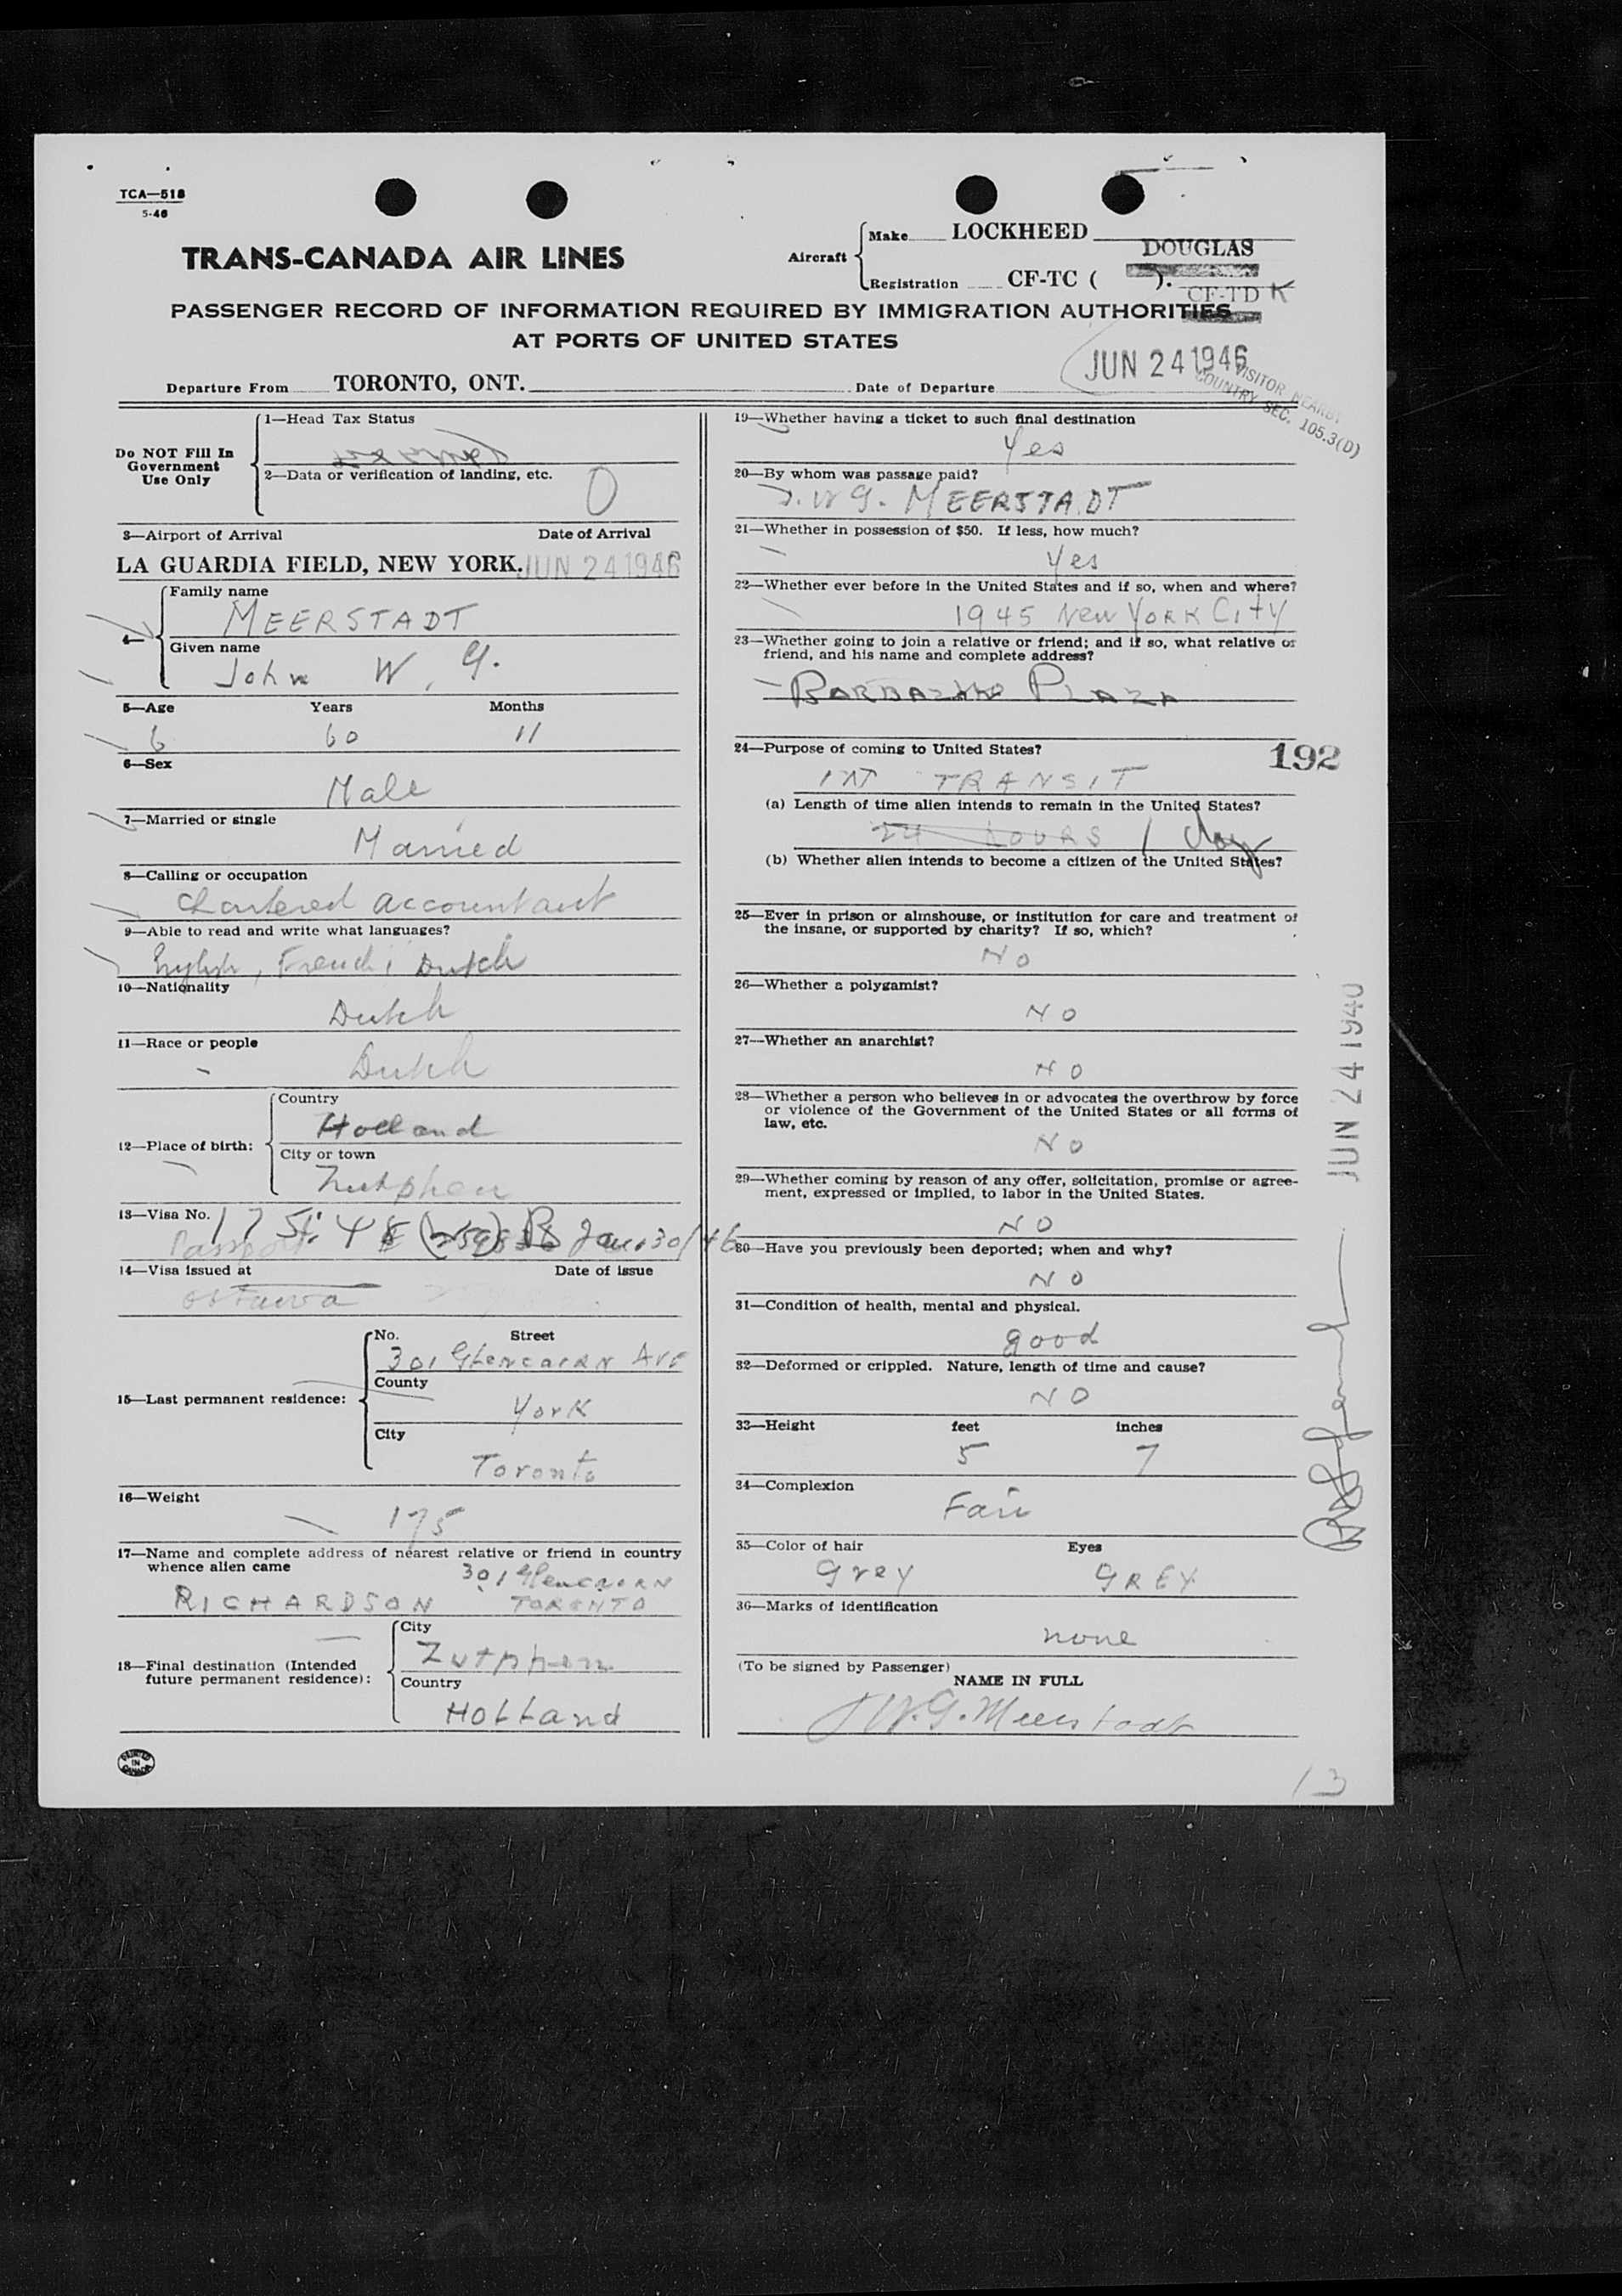 TCA—518
5-46
TRANS-CANADA AIR LINES
Aircraft
Make LOCKHEED
DOUGLAS
Registration CF-TC ( ).
CF-TD K
PASSENGER RECORD OF INFORMATION REQUIRED BY IMMIGRATION AUTHORITIES
AT PORTS OF UNITED STATES
JUN 24 1946
VISITOR NEARBY
COUNTRY SEC. 105.3(D)
Departure From TORONTO, ONT. Date of Departure
Do NOT Fill In
Government
Use Only
1—Head Tax Status
2—Data or verification of landing, etc.
0
3—Airport of Arrival Date of Arrival
LA GUARDIA FIELD, NEW YORK. JUN 24 1946
4—
Family name
MEERSTADT
Given name
John W. G.
5—Age Years Months
6 60 11
6—Sex
Male
7—Married or single
Married
8—Calling or occupation
Chartered accountant
9—Able to read and write what languages?
English, French, Dutch
10—Nationality
Dutch
11—Race or people
Dutch
12—Place of birth:
Country
Holland
City or town
Zutphen
13—Visa No.
Passport Jan. 30/46
14—Visa issued at Date of issue
Ottawa
15—Last permanent residence:
No. Street
301 Glencairn Ave
County
York
City
Toronto
16—Weight
175
17—Name and complete address of nearest relative or friend in country
whence alien came
301 Glencairn
RICHARDSON TORONTO
18—Final destination (Intended
future permanent residence):
City
Zutphen
Country
Holland
PRINTED
IN
CANADA
19—Whether having a ticket to such final destination
Yes
20—By whom was passage paid?
J. W G. MEERSTADT
21—Whether in possession of $50. If less, how much?
Yes
22—Whether ever before in the United States and if so, when and where?
1945 New York City
23—Whether going to join a relative or friend; and if so, what relative or
friend, and his name and complete address?
Plaza
24—Purpose of coming to United States?
192
IN TRANSIT
(a) Length of time alien intends to remain in the United States?
24 hours 1 day
(b) Whether alien intends to become a citizen of the United States?
25—Ever in prison or almshouse, or institution for care and treatment of
the insane, or supported by charity? If so, which?
No
26—Whether a polygamist?
NO
27—Whether an anarchist?
NO
28—Whether a person who believes in or advocates the overthrow by force
or violence of the Government of the United States or all forms of
law, etc.
NO
29—Whether coming by reason of any offer, solicitation, promise or agree-
ment, expressed or implied, to labor in the United States.
NO
30—Have you previously been deported; when and why?
NO
31—Condition of health, mental and physical.
good
32—Deformed or crippled. Nature, length of time and cause?
NO
33—Height feet inches
5 7
34—Complexion
Fair
35—Color of hair Eyes
Grey GREY
36—Marks of identification
none
(To be signed by Passenger)
NAME IN FULL
J W. G. Meerstadt
JUN 24 1946
13